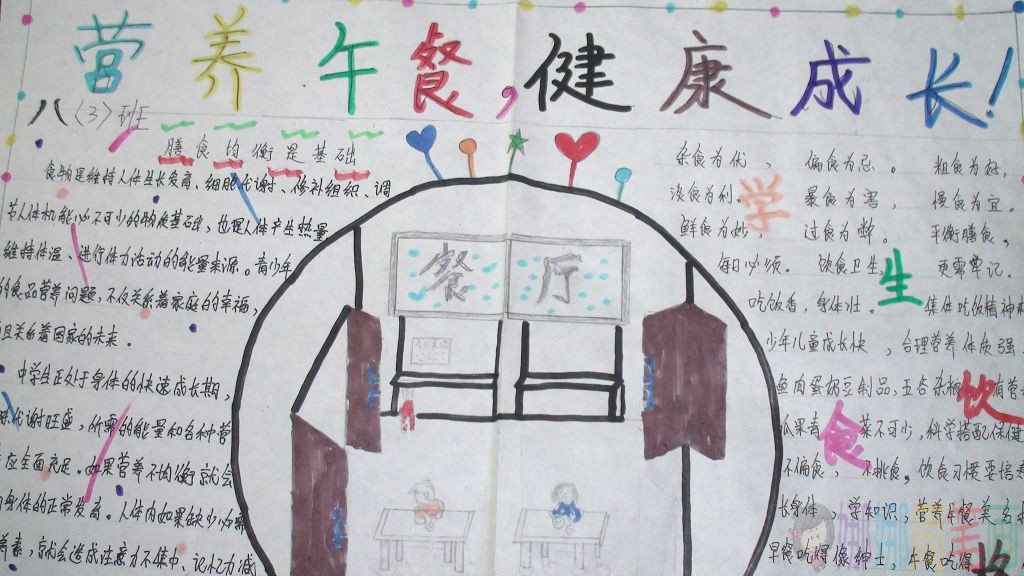 营养午餐,健康成长!
八(3)班
膳食均衡是基础
食物是维持人体生长发育、细胞代谢、修补组织、调
节人体机能必不可少的物质基础,也是人体产生热量
维持体温、进行体力活动的能量来源。青少年
的食品营养问题,不仅关系着家庭的幸福,
且关系着国家的未来。
中学生正处于身体的快速成长期,
代谢旺盛,所需的能量和各种营
应全面充足。如果营养不均衡就会
身体的正常发育。人体内如果缺少
养素,就会造成注意力不集中、记忆力减
餐厅
杂食为优, 偏食为忌。 粗食为好,
淡食为利。 暴食为害, 慢食为宜。
鲜食为妙, 过食为弊。 平衡膳食,
每日必须。 饮食卫生, 更需牢记。
吃饭香,身体壮。 集体吃饭精神
少年儿童成长快,合理营养体质强
鱼肉蛋奶豆制品,五谷杂粮有营
瓜果青菜不可少,科学搭配保健
不偏食,不挑食。饮食习惯要培养
长身体,学知识,营养午餐美名
早餐吃得像绅士,午餐吃得
学
生
饮
食